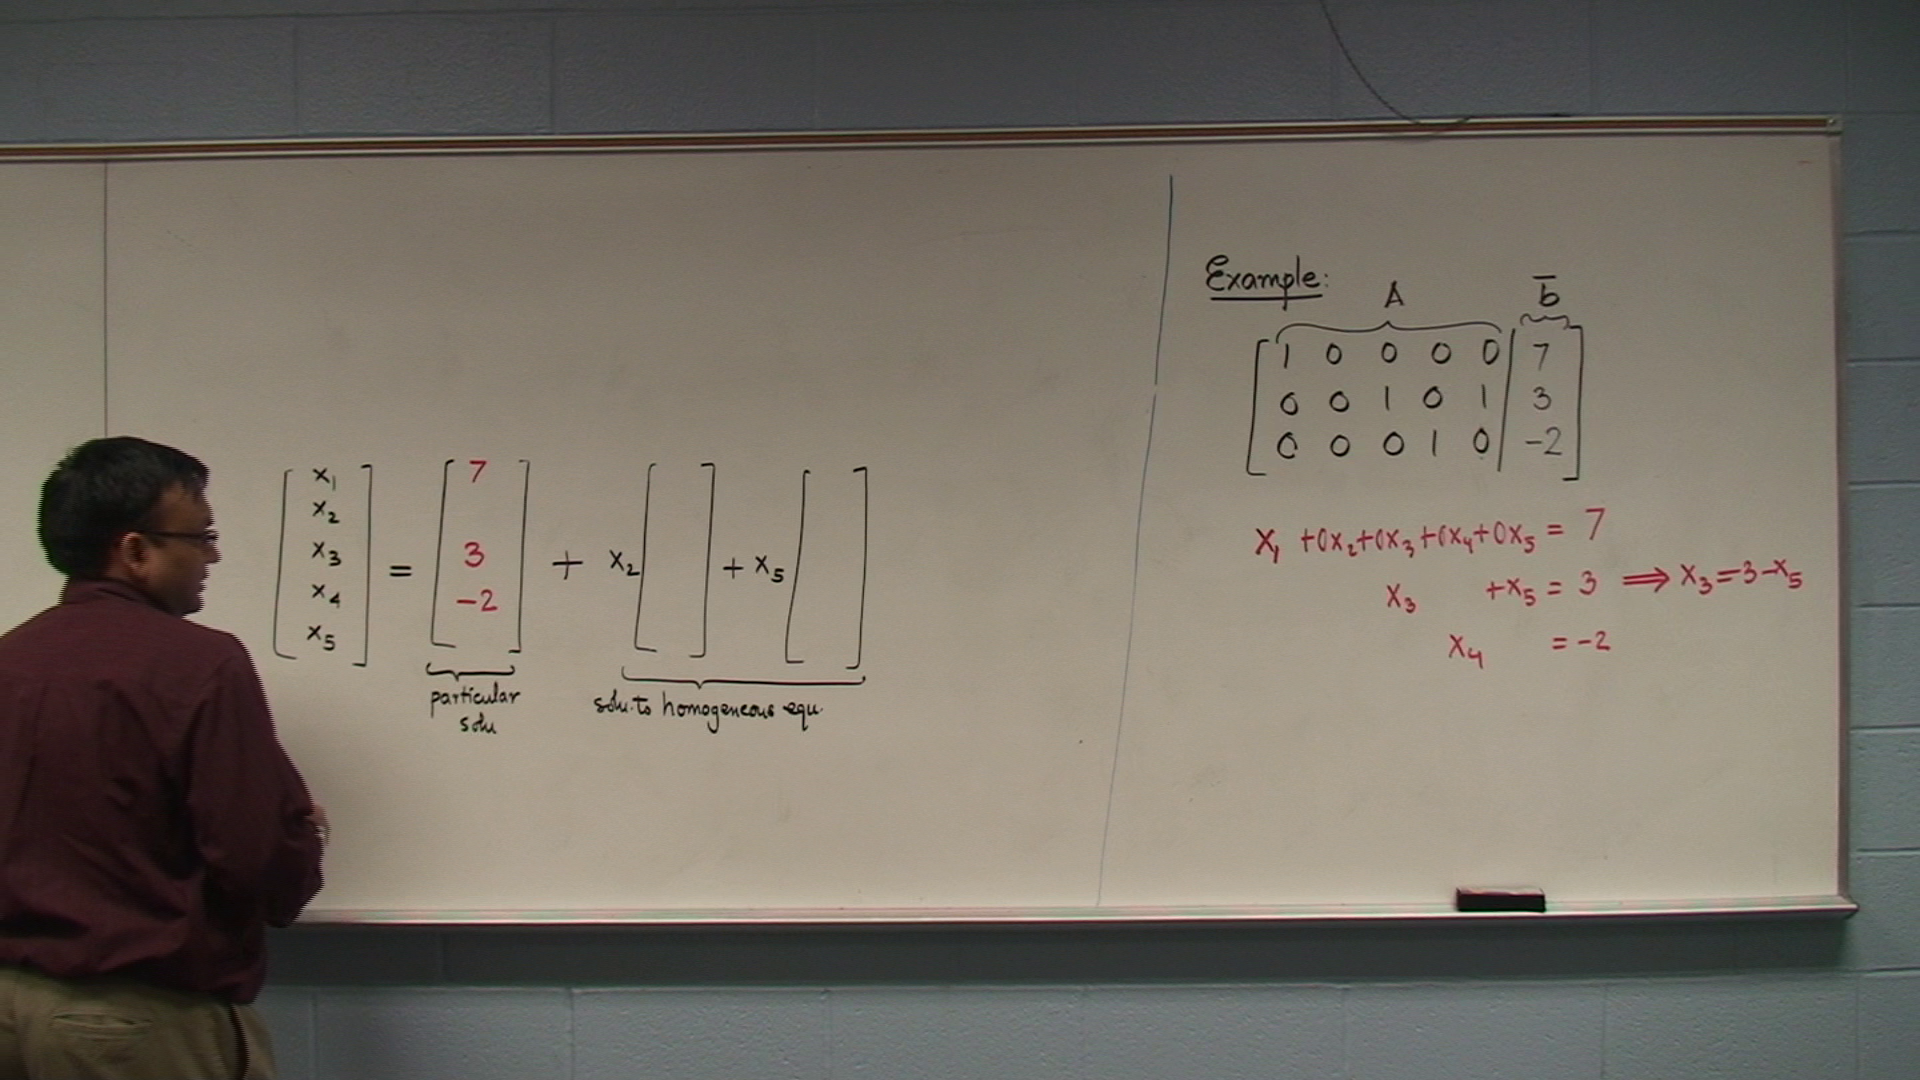 x₁
x₂
x₃
x₄
x₅
=
7
3
-2
+ x₂ [ ] + x₅ [ ]
particular
solu
solu. to homogeneous equ.
Example:
A b̅
1 0 0 0 0 | 7
0 0 1 0 1 | 3
0 0 0 1 0 | -2
x₁ +0x₂+0x₃+0x₄+0x₅ = 7
x₃ +x₅ = 3 ⟹ x₃=3-x₅
x₄ = -2